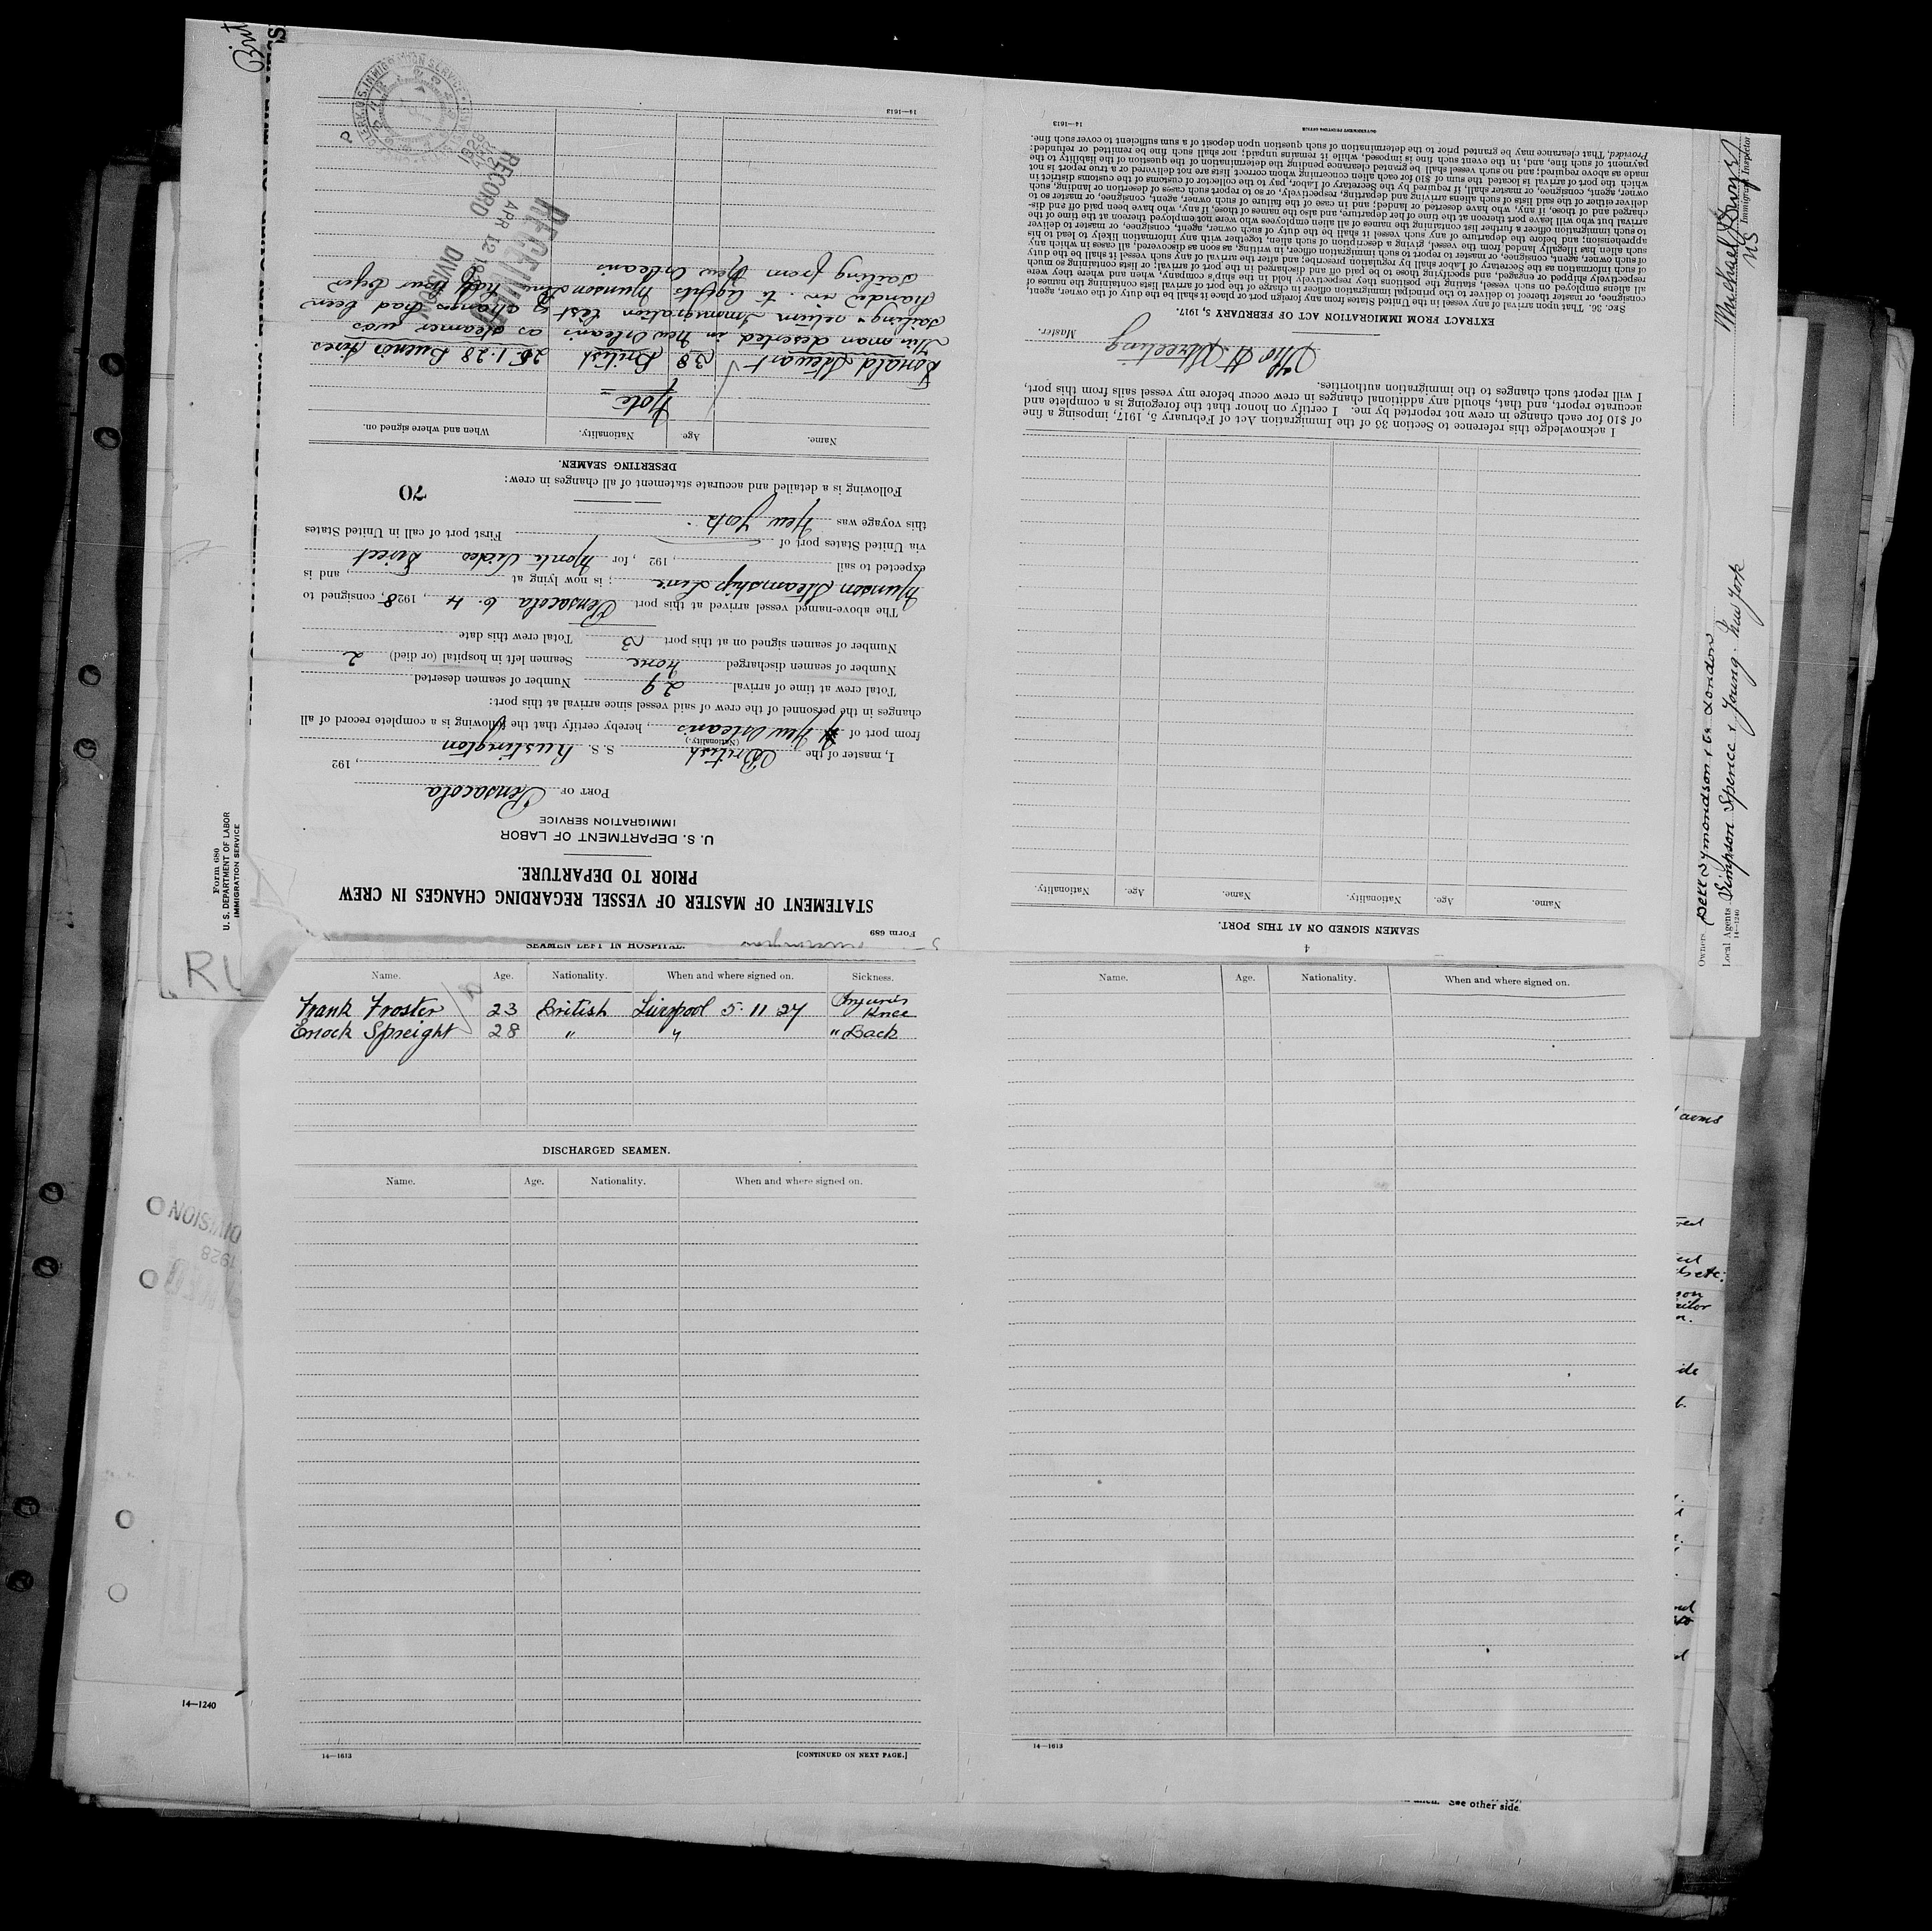 Form 689
STATEMENT OF MASTER OF VESSEL REGARDING CHANGES IN CREW
PRIOR TO DEPARTURE.
U. S. DEPARTMENT OF LABOR
IMMIGRATION SERVICE
PORT OF Pensacola
, 192
I, master of the British S. S. Rustington
(Nationality.)
from port of New Orleans, hereby certify that the following is a complete record of all
changes in the personnel of the crew of said vessel since arrival at this port:
Total crew at time of arrival 29 Number of seamen deserted
Number of seamen discharged none Seamen left in hospital (or died) 2
Number of seamen signed on at this port 3 Total crew this date
The above-named vessel arrived at this port Pensacola 6. 4, 1928, consigned to
Munson Steamship Line; is now lying at , and is
expected to sail , 192 , for Monte Video Direct
via United States port of First port of call in United States
this voyage was New York.
70
Following is a detailed and accurate statement of all changes in crew:
DESERTING SEAMEN.
Name. Age Nationality. When and where signed on.
Note
Donald Stewart 38 British 25.1.28 Buenos Aires
This man deserted in New Orleans as steamer was
sailing & return Immigration list of changes had been
handed in to Agents Munson Line half hour before
sailing from New Orleans
RECEIVED
APR 12 1928
RECORD DIVISION
14—1613
SEAMEN LEFT IN HOSPITAL.
Name. Age. Nationality. When and where signed on. Sickness.
Frank Froster 23 British Liverpool 5. 11 27 Injuries Knee
Enock Spreight 28 " " " Back
DISCHARGED SEAMEN.
Name. Age. Nationality. When and where signed on.
14—1613 [CONTINUED ON NEXT PAGE.]
Name. Age. Nationality. When and where signed on.
14—1613
4
SEAMEN SIGNED ON AT THIS PORT.
Name. Age. Nationality. Name. Age. Nationality.
I acknowledge this reference to Section 36 of the Immigration Act of February 5, 1917, imposing a fine
of $10 for each change in crew not reported by me. I certify on honor that the foregoing is a complete and
accurate report, and that, should any additional changes in crew occur before my vessel sails from this port,
I will report such changes to the immigration authorities.
Master.
EXTRACT FROM IMMIGRATION ACT OF FEBRUARY 5, 1917.
SEC. 36. That upon arrival of any vessel in the United States from any foreign port or place it shall be the duty of the owner, agent,
consignee, or master thereof to deliver to the principal immigration officer in charge of the port of arrival lists containing the names of
all aliens employed on such vessel, stating the positions they respectively hold in the ship's company, when and where they were
respectively shipped or engaged, and specifying those to be paid off and discharged in the port of arrival; or lists containing so much
of such information as the Secretary of Labor shall by regulation prescribe; and after the arrival of any such vessel it shall be the duty
of such owner, agent, consignee, or master to report to such immigration officer, in writing, as soon as discovered, all cases in which any
such alien has illegally landed from the vessel, giving a description of such alien, together with any information likely to lead to his
apprehension; and before the departure of any such vessel it shall be the duty of such owner, agent, consignee, or master to deliver
to such immigration officer a further list containing the names of all alien employees who were not employed thereon at the time of the
arrival but who will leave port thereon at the time of her departure, and also the names of those, if any, who have been paid off and dis-
charged and of those, if any, who have deserted or landed; and in case of the failure of such owner, agent, consignee, or master so to
deliver either of the said lists of such aliens arriving and departing, respectively, or so to report such cases of desertion or landing, such
owner, agent, consignee, or master shall, if required by the Secretary of Labor, pay to the collector of customs of the customs district in
which the port of arrival is located the sum of $10 for each alien concerning whom correct lists are not delivered or a true report is not
made as above required; and no such vessel shall be granted clearance pending the determination of the question of the liability to the
payment of such fine, and, in the event such fine is imposed, while it remains unpaid; nor shall such fine be remitted or refunded:
Provided, That clearance may be granted prior to the determination of such question upon deposit of a sum sufficient to cover such fine.
GOVERNMENT PRINTING OFFICE
14—1613
Form 680
U. S. DEPARTMENT OF LABOR
IMMIGRATION SERVICE
Immigrant Inspector
Owners
Local Agents Simpson Spence & Young. New York
14—1240
14—1240
DIVISION
1928
See other side.